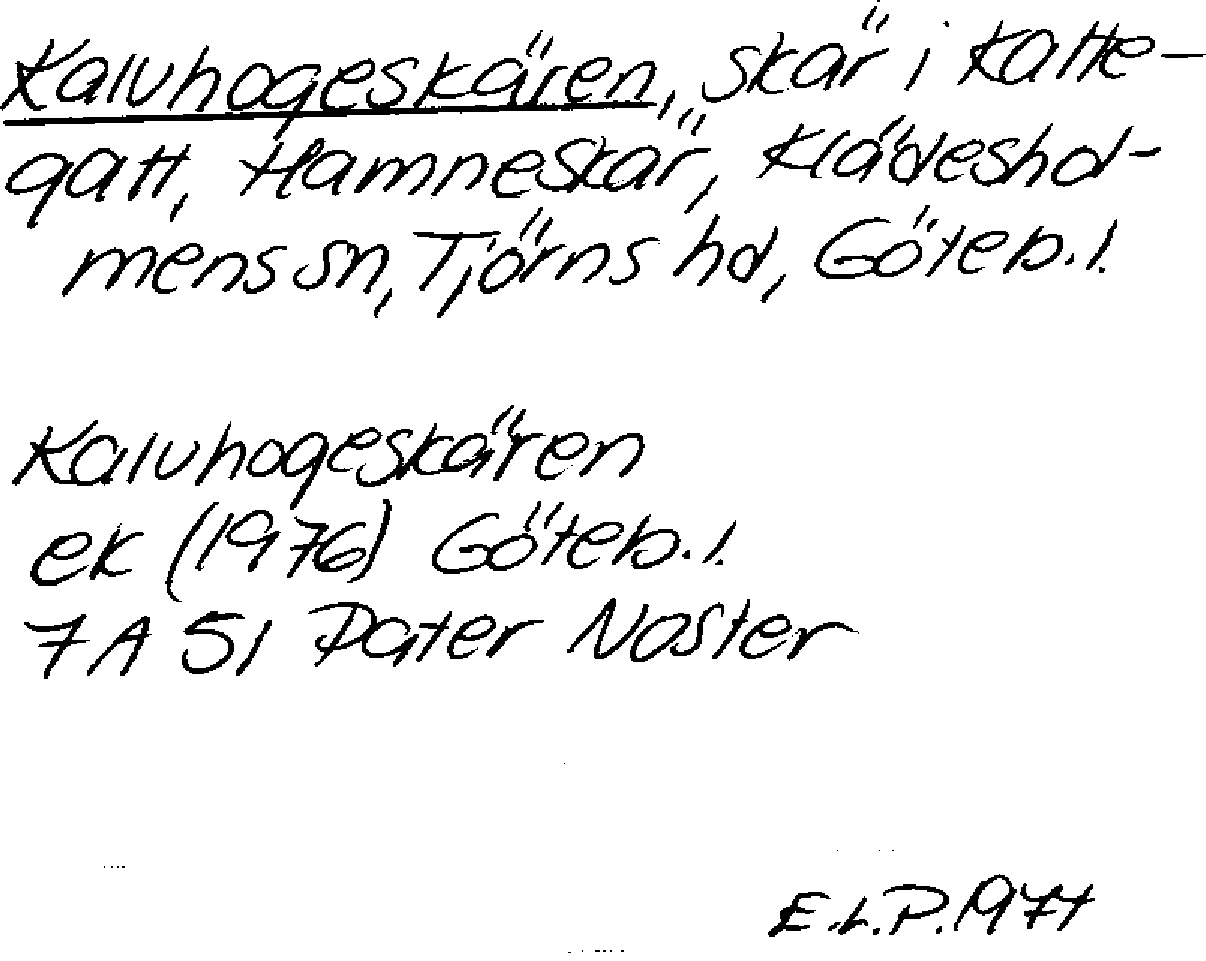 Kalvhogeskären, skär i Katte-
gatt, Hamneskär, Klädeshol-
mens sn, Tjörns hd, Göteb.l.
Kalvhogeskären
ek (1976) Göteb.l.
7A 5i Pater Noster
E.L.P. 1977